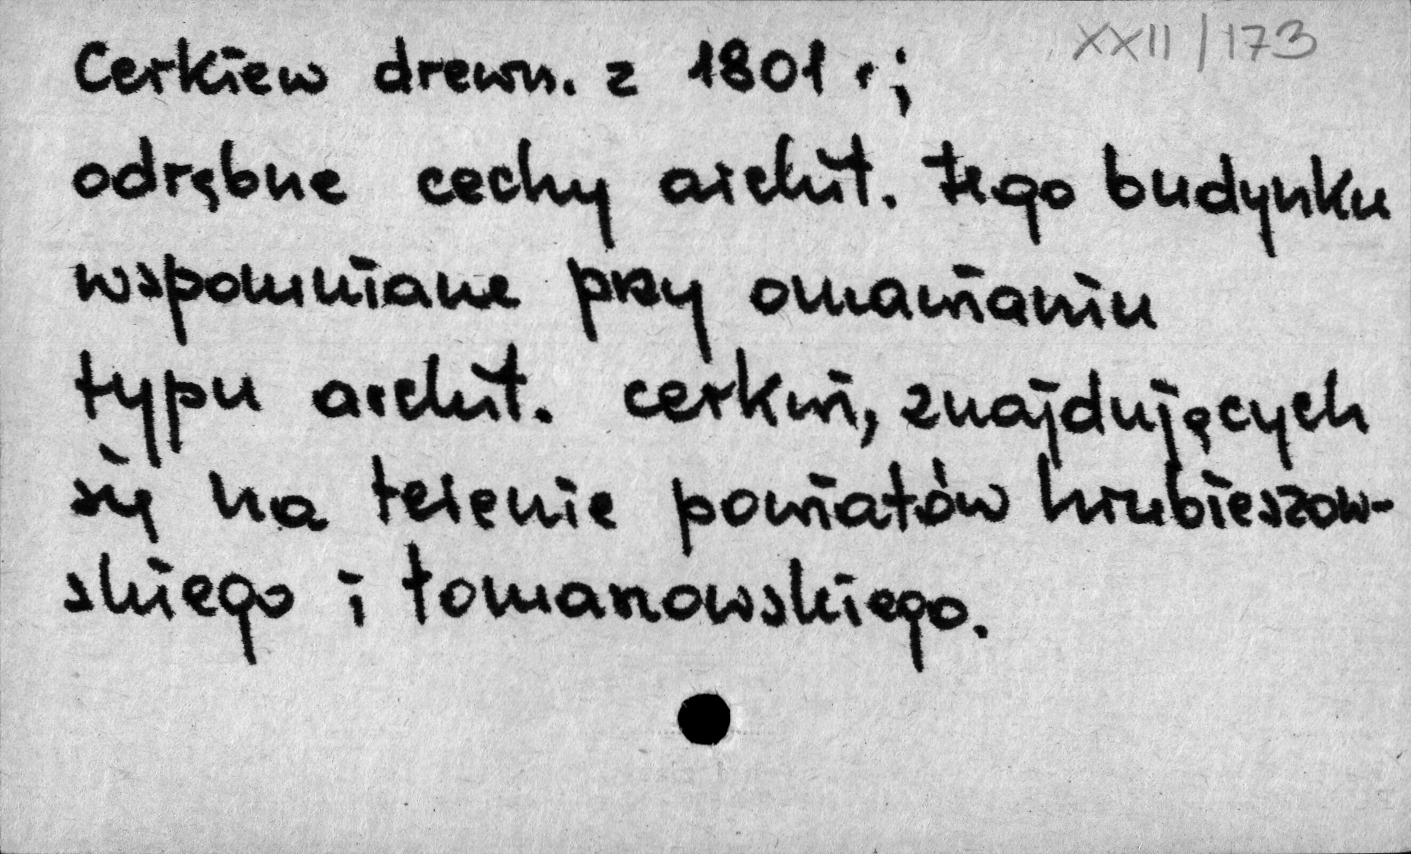 XXII/173
Cerkiew drewn. z 1801 r;
odrębne cechy archit. tego budynku
wspomniane przy omawianiu
typu archit. cerkwi, znajdujących
się na terenie powiatów hrubieszow-
skiego i tomaszowskiego.